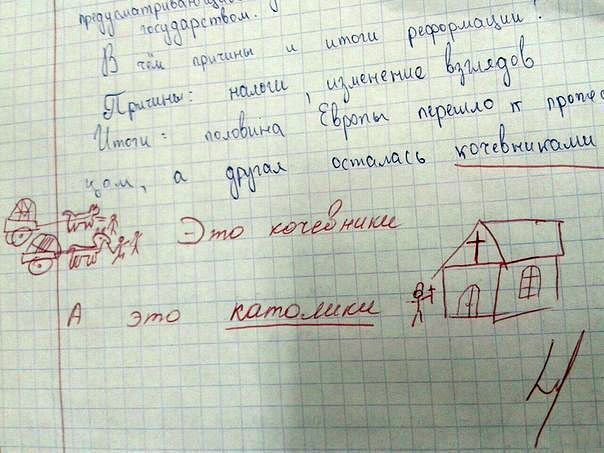 предусматривающ
государством.
В чём причины и итоги реформации?
Причины: налоги, изменение взглядов
Итоги: половина Европы перешло к проте
цом, а другая осталась кочевниками
Это кочевники
А это католики
4